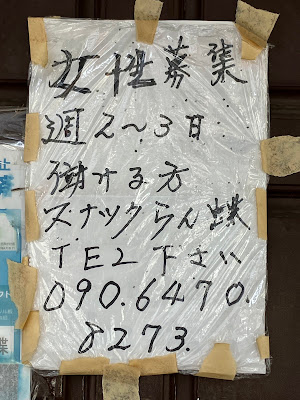 女性募集
週2～3日
働ける方
スナックらん蝶
TEL下さい
090.6470.
8273.